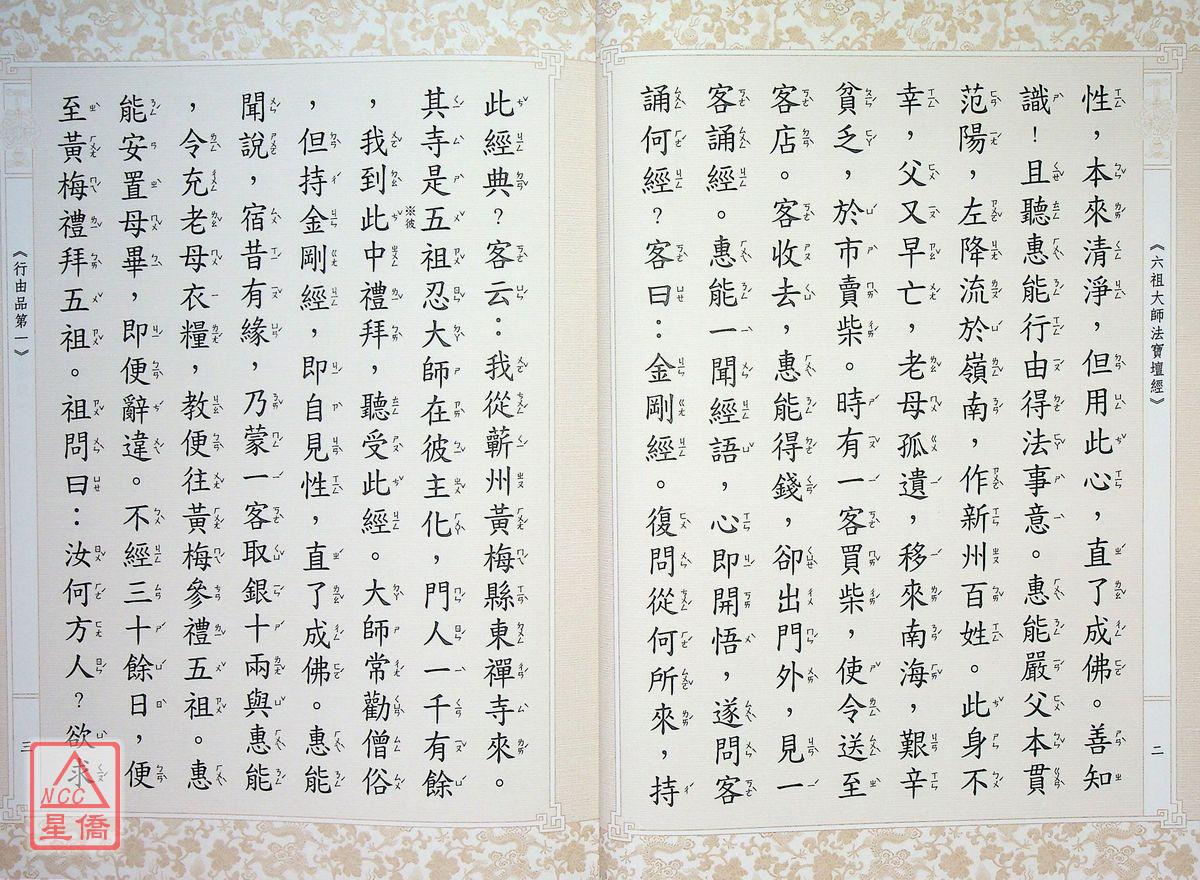 《六祖大師法寶壇經》
二
性，本來清淨，但用此心，直了成佛。善知
識！且聽惠能行由得法事意。惠能嚴父本貫
范陽，左降流於嶺南，作新州百姓。此身不
幸，父又早亡，老母孤遺，移來南海，艱辛
貧乏，於市賣柴。時有一客買柴，使令送至
客店。客收去，惠能得錢，卻出門外，見一
客誦經。惠能一聞經語，心即開悟，遂問客
誦何經？客曰：金剛經。復問從何所來，持
此經典？客云：我從蘄州黃梅縣東禪寺來。
其寺是五祖忍大師在彼主化，門人一千有餘
，我到此※彼中禮拜，聽受此經。大師常勸僧俗
，但持金剛經，即自見性，直了成佛。惠能
聞說，宿昔有緣，乃蒙一客取銀十兩與惠能
，令充老母衣糧，教便往黃梅參禮五祖。惠
能安置母畢，即便辭違。不經三十餘日，便
至黃梅禮拜五祖。祖問曰：汝何方人？欲求
《行由品第一》
三
NCC
星僑